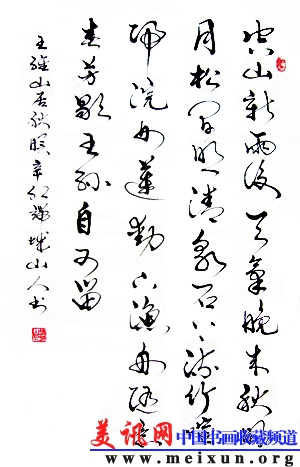 空山新雨後天氣晚来秋明
月松間照清泉石上流竹喧
歸浣女蓮動下漁舟隨意
春芳歇王孫自可留
王維山居秋暝辛卯城山人书
美讯网 中国书画收藏频道
www.meixun.org